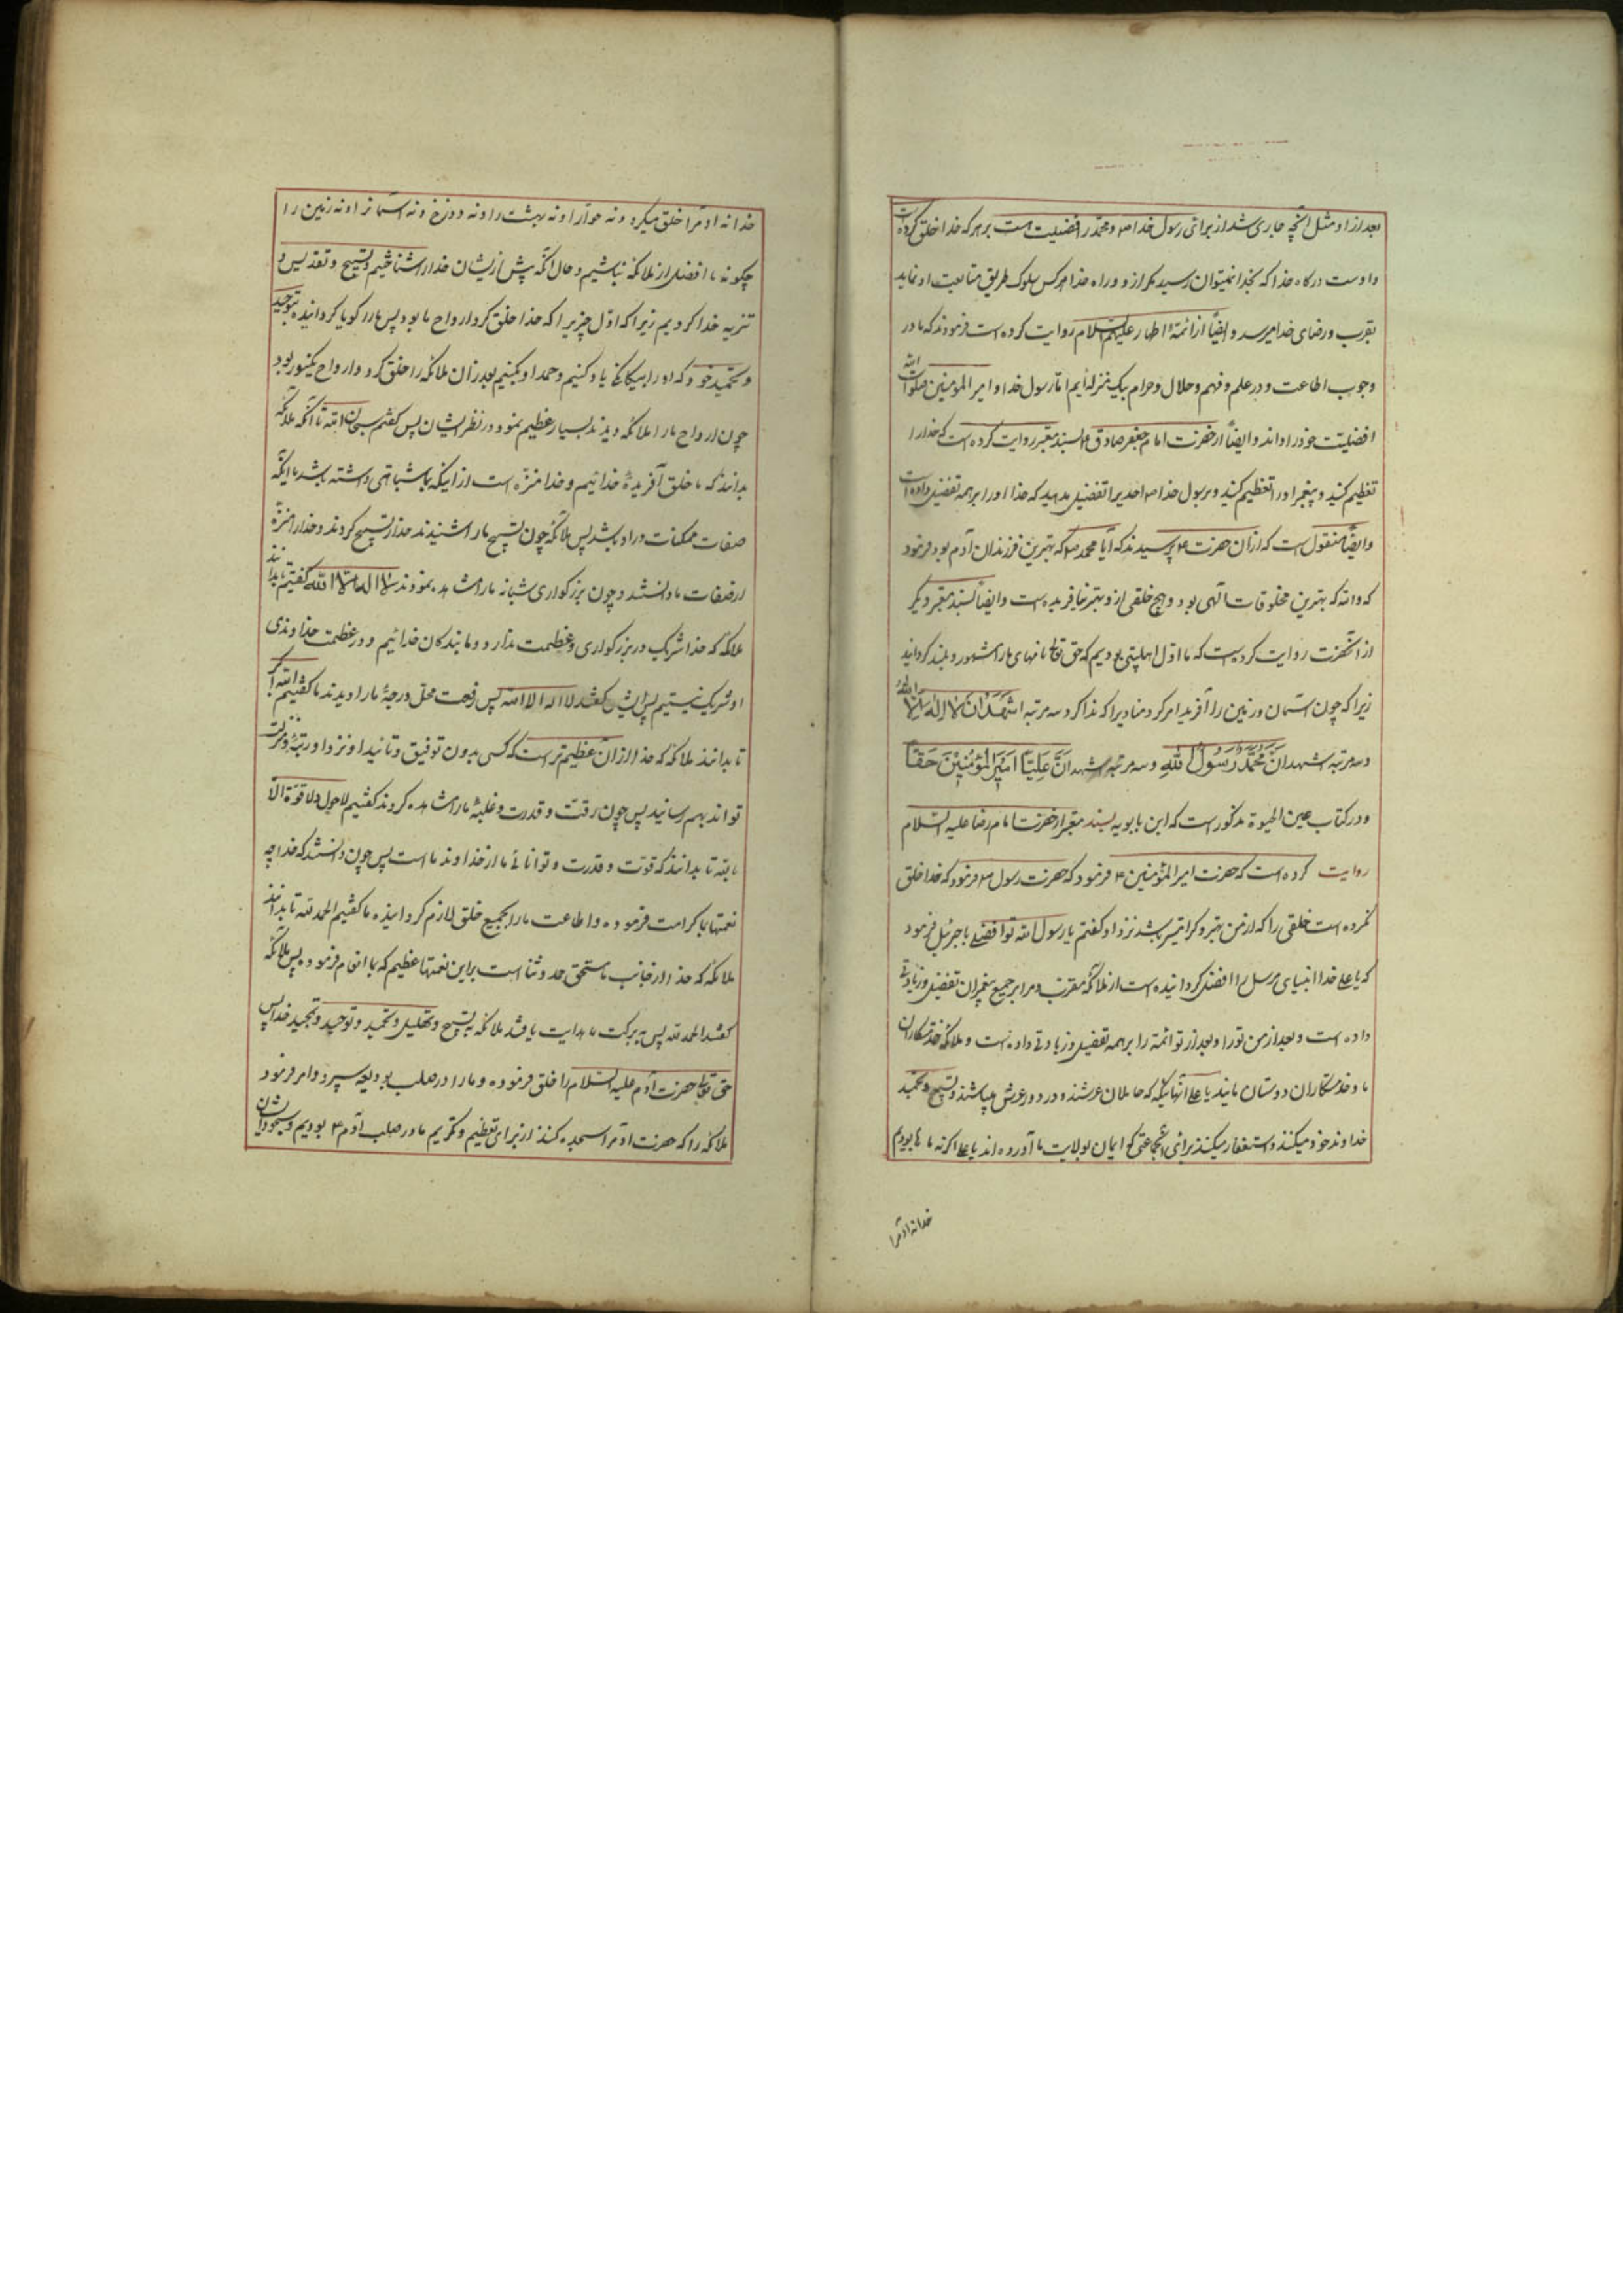 بعد از او مثل آنچه جاری شد از برای رسول خدا ص و محمد را فضیلت است بر هر که خدا خلق کرده است
و اوست درگاه خدا که بخدا نمیتوان رسید مگر از او و راه خدا هر کس سلوک طریق متابعت او نماید
بقرب و رضای خدا میرسد و ایضاً از ائمه اطهار علیهم السلام روایت کرده است فرمودند که ما در
وجوب اطاعت و در علم و فهم و حلال و حرام بیک منزله ایم اما رسول خدا و امیر المؤمنین صلوات الله
افضلیت خود را دارند و ایضاً از حضرت امام جعفر صادق ع بسند معتبر روایت کرده است که خدا را
تعظیم کنید و پیغمبر او را تعظیم کنید و بر رسول خدا ص احدیرا تفضیل مدهید که خدا او را بر همه تفضیل داده است
و ایضاً منقول است که از آن حضرت ع پرسیدند که آیا محمد ص که بهترین فرزندان آدم بود فرمود
که والله که بهترین مخلوقات آلهی بود و هیچ خلقی از او بهتر نیافریده است و ایضاً بسند معتبر دیگر
از آنحضرت روایت کرده است که ما اول اهلبیتی بودیم که حق تعالی نامهای ما را مشهور و بلند گردانید
زیرا که چون آسمان و زمین را آفرید امر کرد منادیرا که ندا کرد سه مرتبه اشهد ان لا اله الا الله
و سه مرتبه اشهد ان محمد رسول الله و سه مرتبه اشهد ان علیا امیر المؤمنین حقا
و در کتاب عین الحیوة مذکور است که ابن بابویه بسند معتبر از حضرت امام رضا علیه السلام
روایت کرده است که حضرت امیر المؤمنین ع فرمود که حضرت رسول ص فرمود که خدا خلق
نکرده است خلقی را که از من بهتر و گرامیتر باشد نزد او گفتم یا رسول الله تو افضلی یا جبرئیل فرمود
که یا علی خدا انبیای مرسل را افضل گردانیده است از ملائکه مقرب و مرا بر جمیع پیغمبران تفضیل و زیادتی
داده است و بعد از من تو را و بعد از تو ائمه را بر همه تفضیل و زیادتی داده است و ملائکه خدمتکاران
ما و خدمتکاران دوستان مایند یا علی آنهائیکه که حاملان عرشند و در دور عرش میباشند و تسبیح و تمجید
خداوند خود میکنند و استغفار میکنند برای جماعتی که ایمان بولایت ما آورده اند یا علی اگر نه ما می بودیم
خدا نه آدم را
خدا نه آدم را خلق میکرد و نه حوا را و نه بهشت را و نه دوزخ و نه آسمانرا و نه زمین را
چگونه ما افضل از ملائکه نباشیم و حال آنکه پیش از ایشان خدا را شناختیم و تسبیح و تقدیس و
تنزیه خدا کردیم زیرا که اول چیزیرا که خدا خلق کرد ارواح ما بود پس ما را گویا گردانیده بتوحید
و تحمید خود که او را بیگانگی یاد کنیم و حمد او بکنیم بعد از آن ملائکه را خلق کرد و ارواح یکنور بود
چون ارواح ما را ملائکه دیدند بسیار عظیم نمود در نظر ایشان پس گفتیم سبحان الله تا آنکه ملائکه
بدانند که ما خلق آفریده خدائیم و خدا منزه است از اینکه بما شباهتی داشته باشد یا اینکه
صفات ممکنات در او باشد پس ملائکه چون تسبیح ما را شنیدند خدا را تسبیح کردند و خدا را منزه
از صفات ما دانستند و چون بزرگواری شان ما را مشاهده نمودند لا اله الا الله گفتیم تا بدانند
ملائکه که خدا شریک در بزرگواری و عظمت ندارد و ما بندگان خدائیم و در عظمت خداوندی
او شریک نیستیم پس ایشان گفتند لا اله الا الله پس رفعت محل و درجه ما را دیدند ما گفتیم الله اکبر
تا بدانند ملائکه که خدا از آن عظیم تر است که کسی بدون توفیق و تائید او نزد او رتبه و منزلت
تواند بهم رسانید پس چون قوت و قدرت و غلبه ما را مشاهده کردند گفتیم لا حول و لا قوة الا
بالله تا بدانند که قوت و قدرت و توانائی ما از خداوند ما است پس چون دانستند که خدا چه
نعمتها بما کرامت فرموده و اطاعت ما را بجمیع خلق لازم گردانیده ما گفتیم الحمد لله تا بدانند
ملائکه که خدا از جانب ما مستحق حمد و ثنا است بر این نعمتها عظیم که بما انعام فرموده پس ملائکه
گفتند الحمد لله پس به برکت ما هدایت یافتند ملائکه به تسبیح و تهلیل و تحمید و توحید و تمجید خدا پس
حق تعالی حضرت آدم علیه السلام را خلق فرموده و ما را در صلب او بودیعه سپرد و امر فرمود
ملائکه را که حضرت آدم را سجده کنند از برای تعظیم و تکریم ما در صلب آدم ع بودیم و سجود ایشان